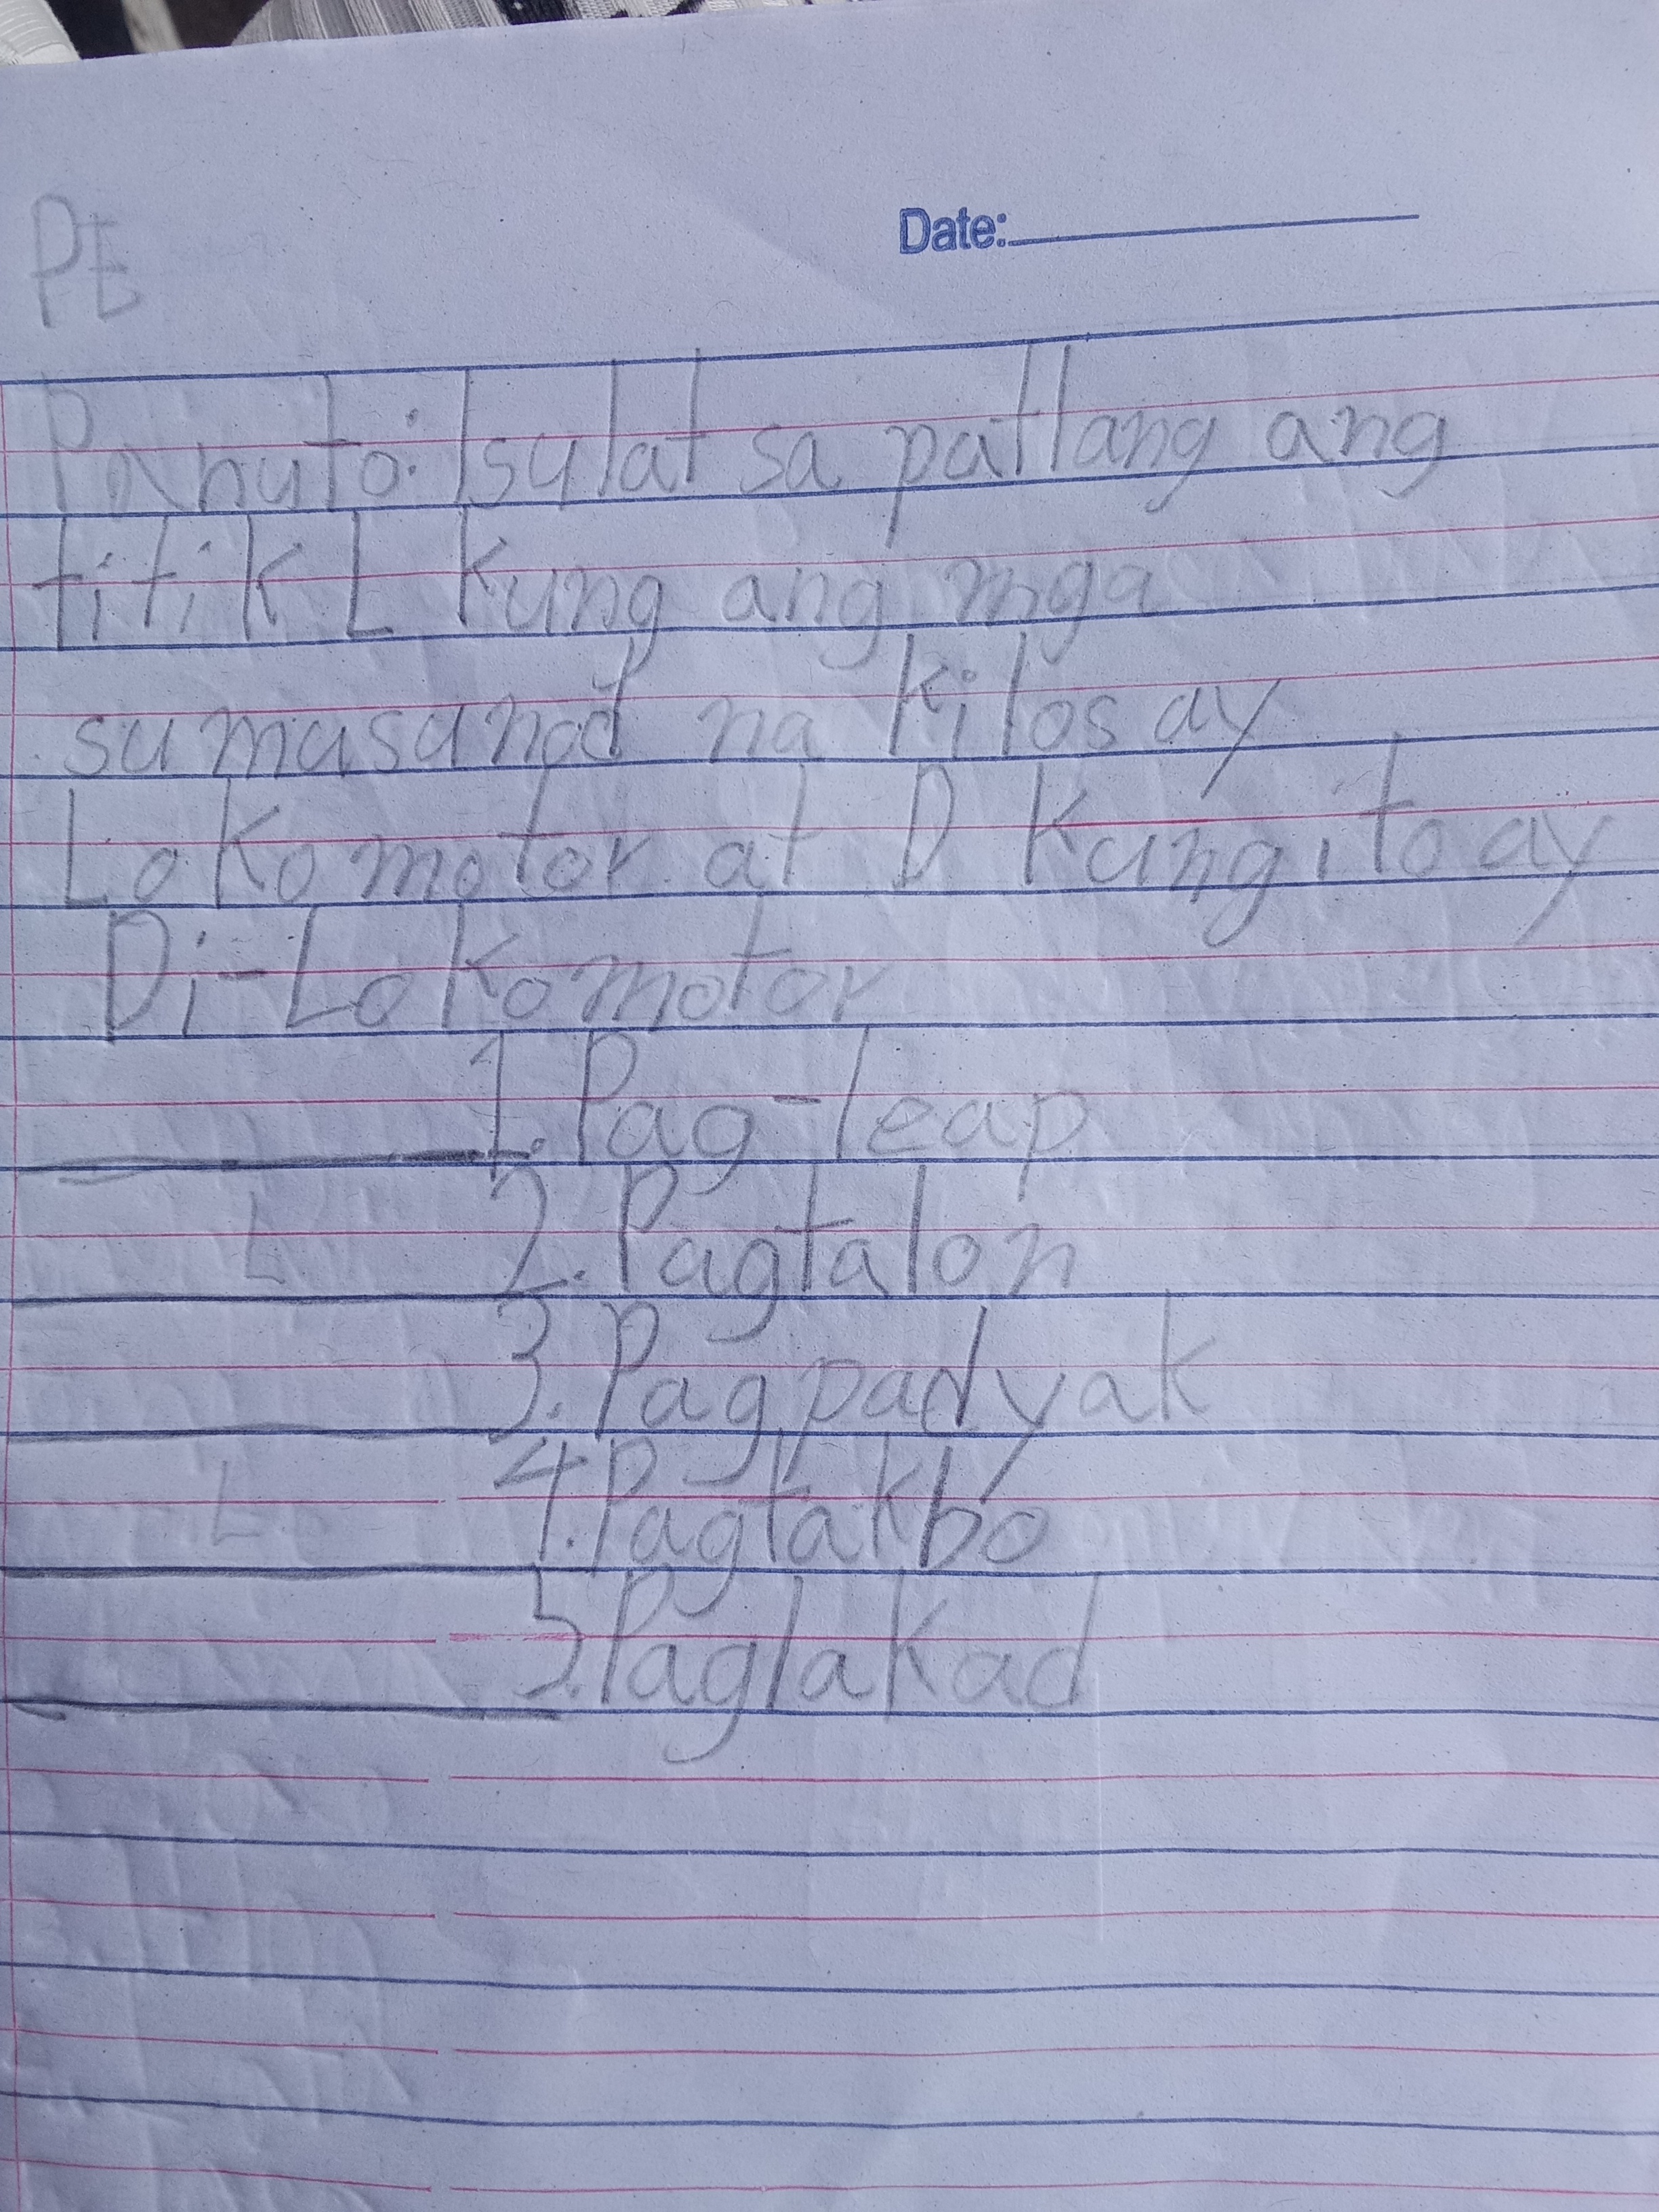 PE
Date:
Panuto: Isulat sa patlang ang
titik L kung ang mga
sumusunod na kilos ay
Lokomotor at D kung ito ay
Di-Lokomotor
1. Pag-leap
L 2. Pagtalon
3. Pagpadyak
L 4. Pagtakbo
5. Paglakad